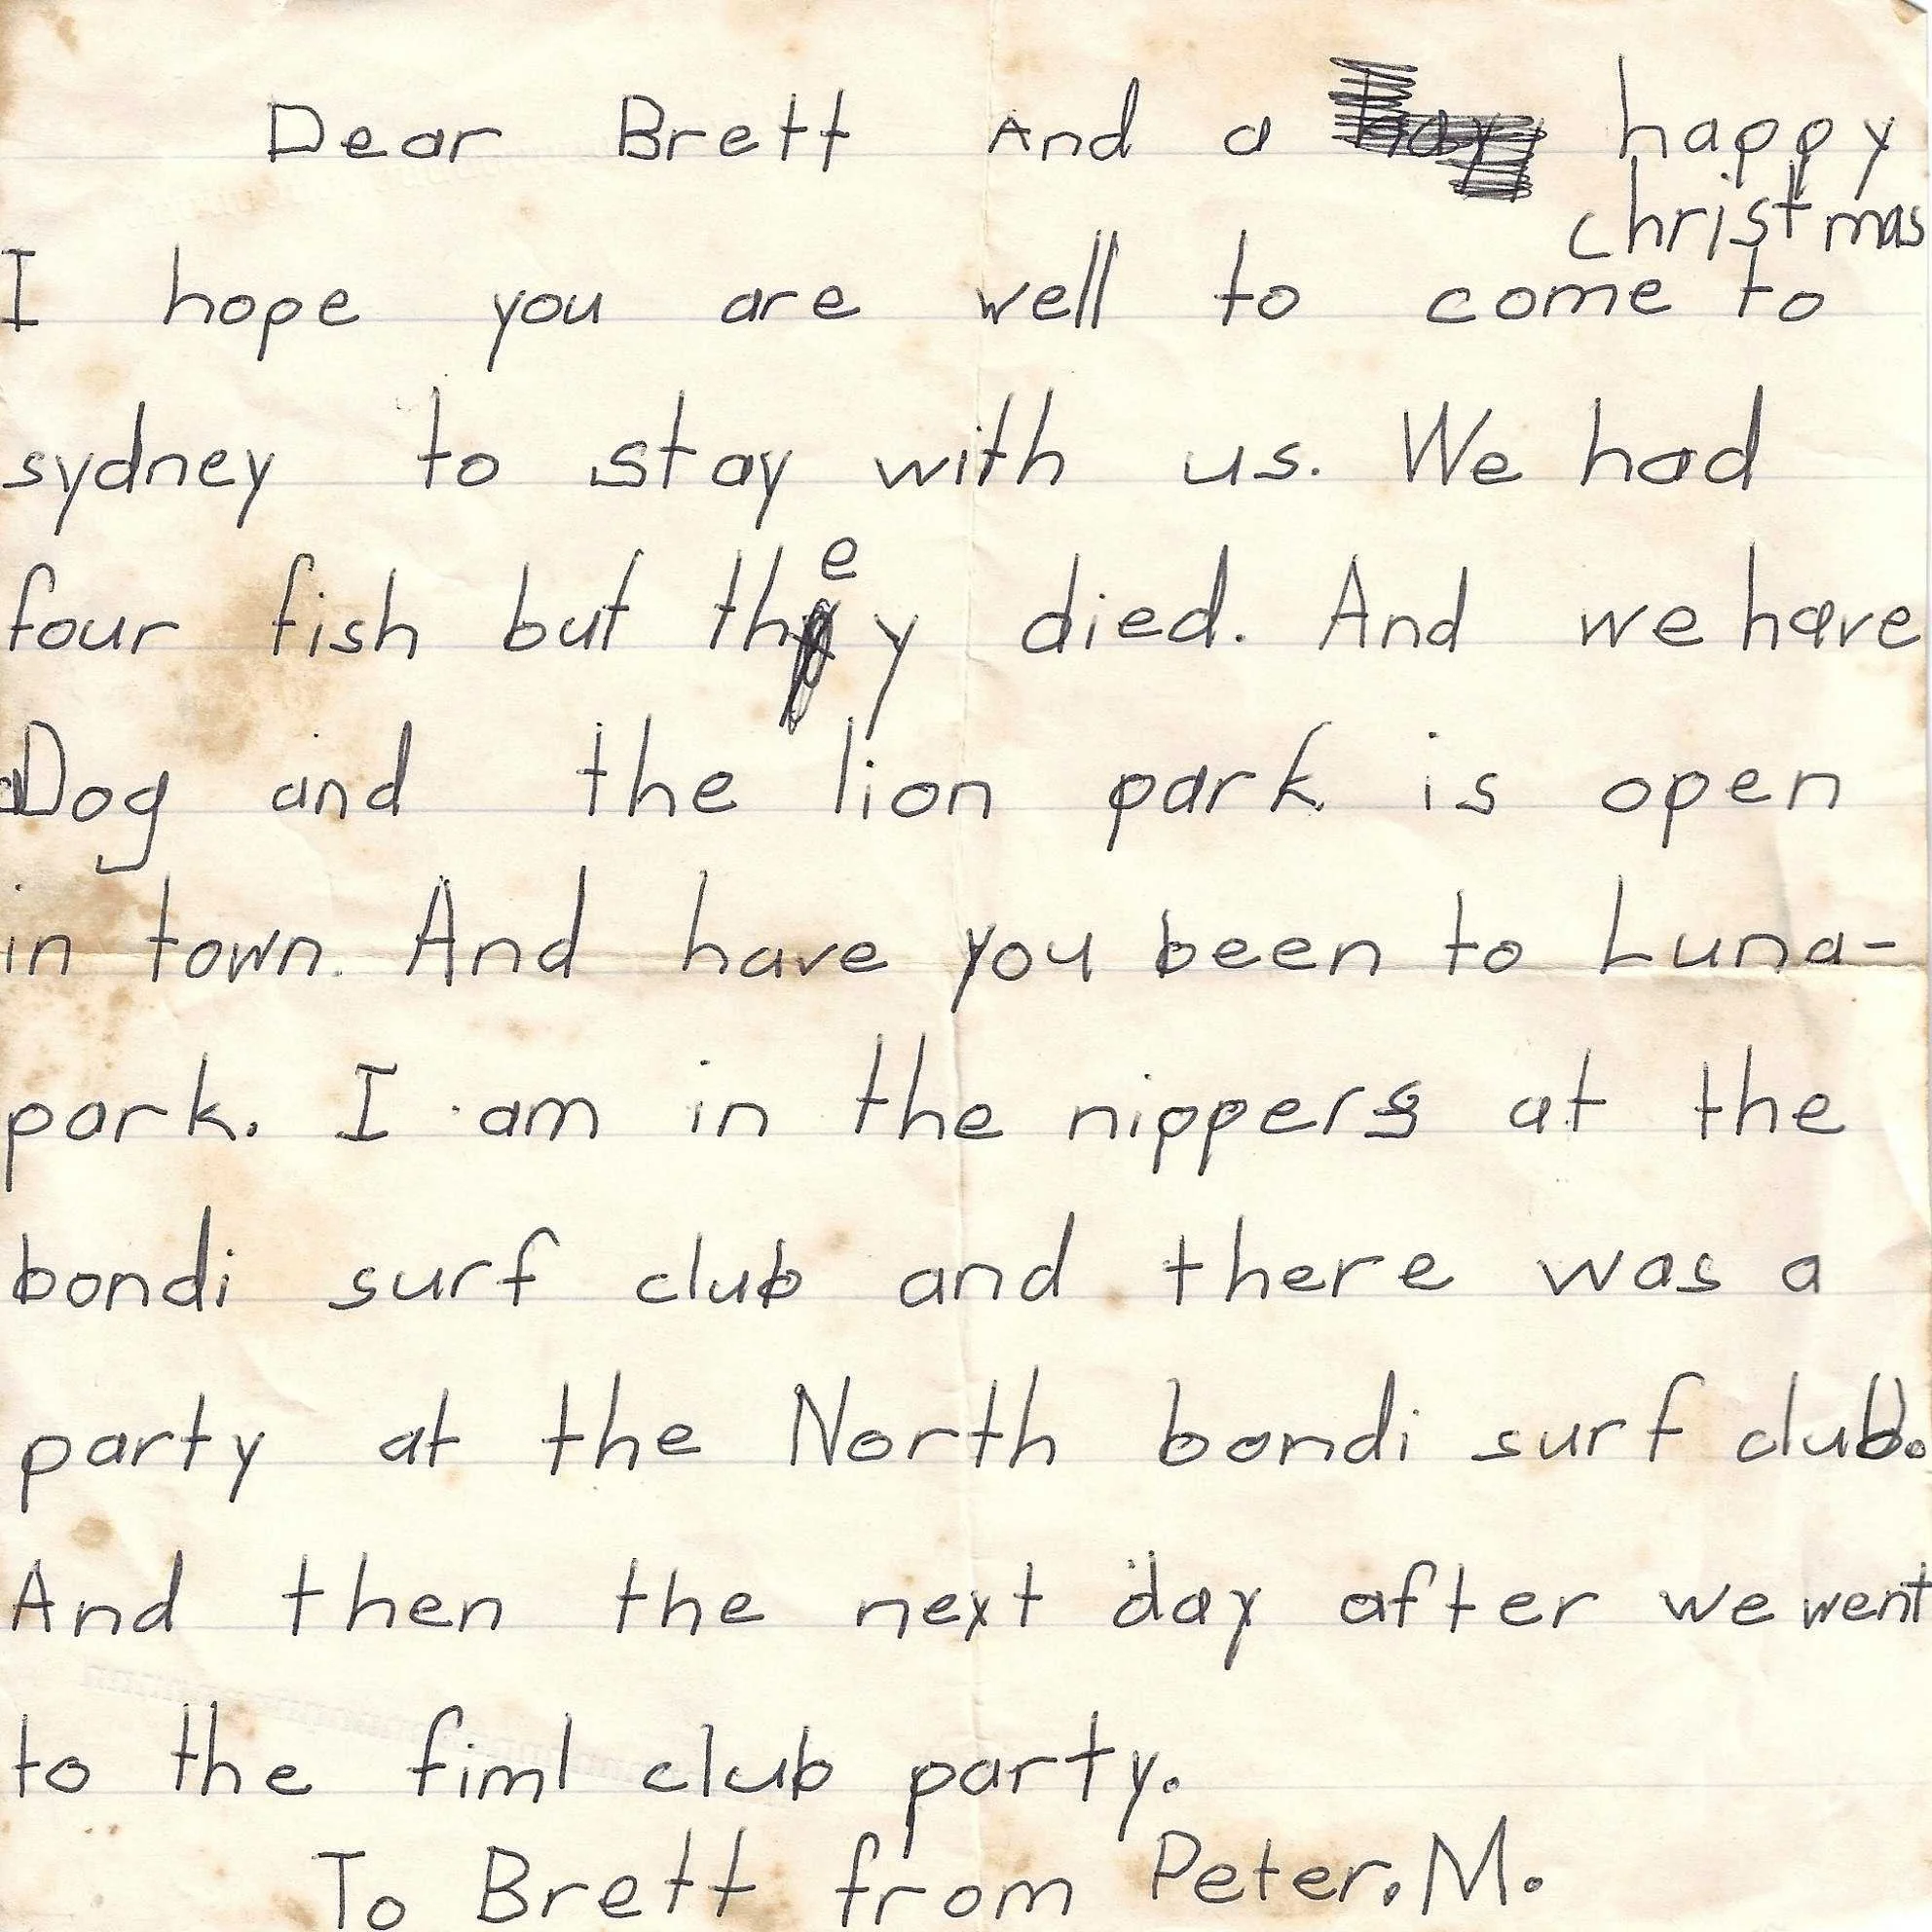 Dear Brett And a happy
christmas
I hope you are well to come to
sydney to stay with us. We had
four fish but they died. And we have
a Dog and the lion park is open
in town. And have you been to Luna-
park. I am in the nippers at the
bondi surf club and there was a
party at the North bondi surf club.
And then the next day after we went
to the fiml club party.
To Brett from Peter.M.